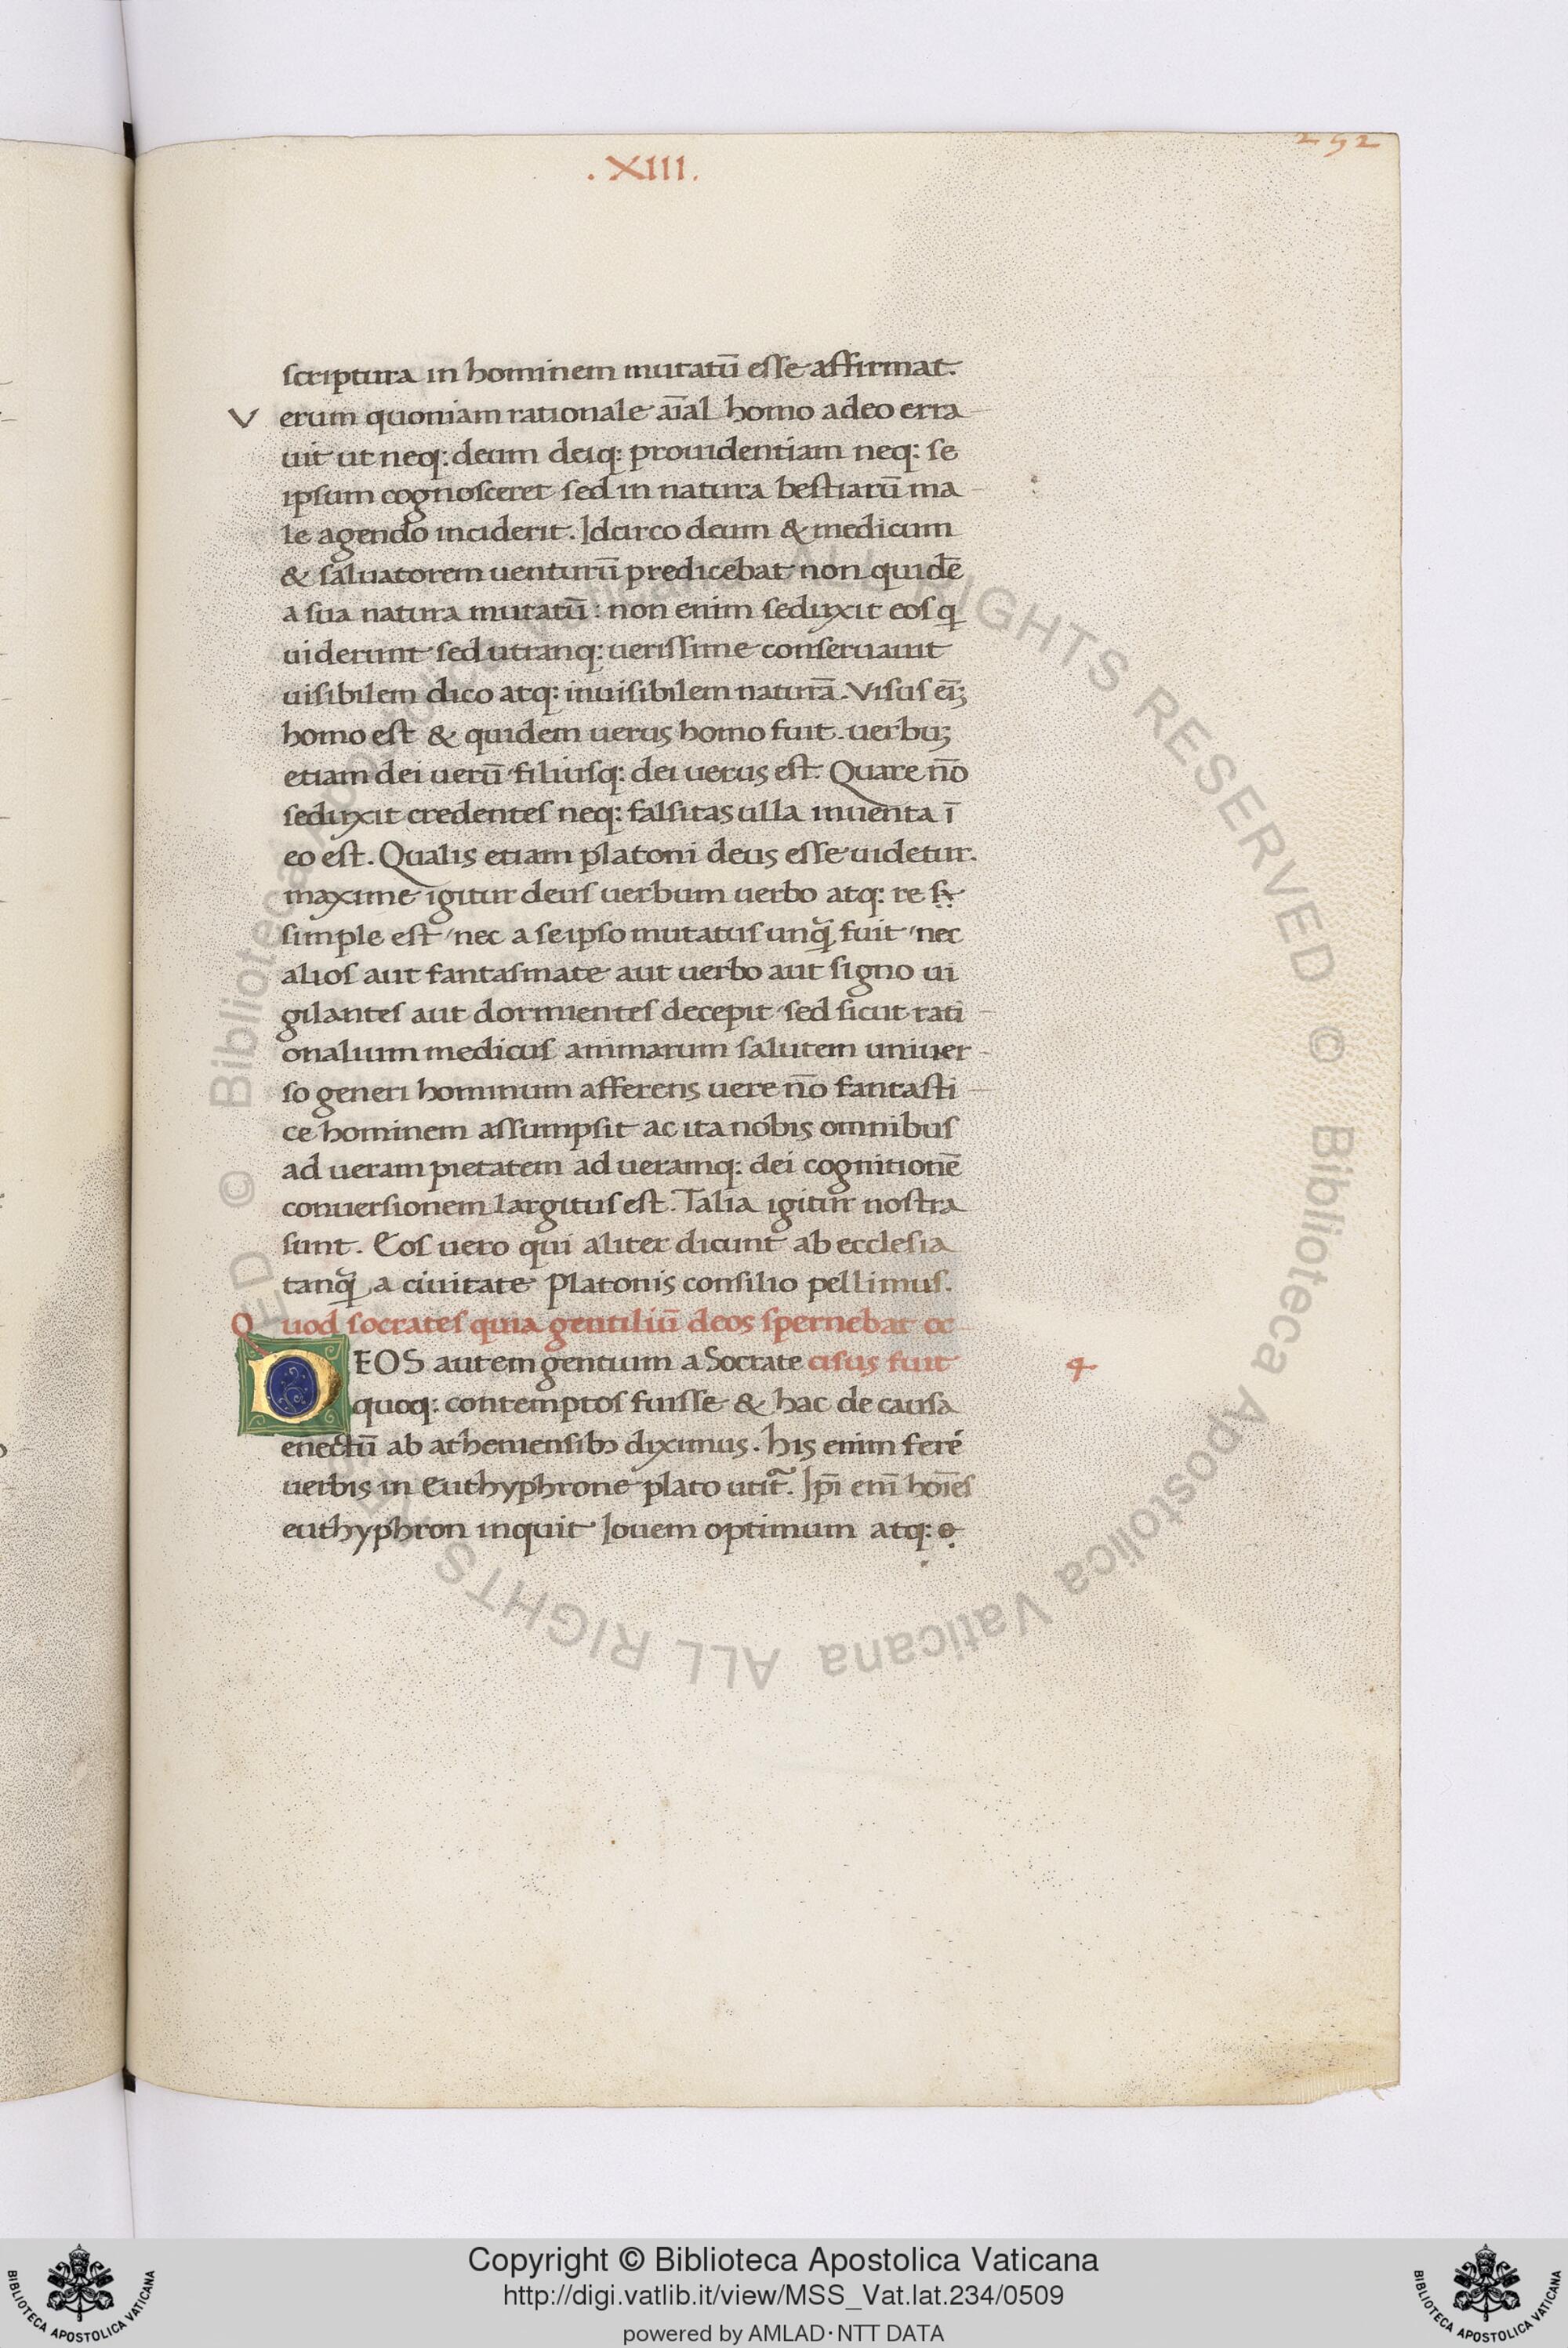 252
. XIII.
scriptura in hominem mutatū esse affirmat.
Verum quoniam rationale aīal homo adeo erra
uit ut neq: deum deiq: prouidentiam neq: se
ipsum cognosceret sed in natura bestiarū ma
le agendo inciderit. Idcirco deum & medicum
& saluatorem uenturū predicebat non quidē
a sua natura mutatū: non enim seduxit eos q̨
uiderunt sed utranq: uerissime conseruauit
uisibilem dico atq: inuisibilem naturā. Visus eī;
homo est & quidem uerus homo fuit. uerbu;
etiam dei uerū filiusq: dei uerus est. Quare nō
seduxit credentes neq: falsitas ulla inuenta ī
eo est. Qualis etiam platoni deus esse uidetur.
maxime igitur deus uerbum uerbo atq: re
simple est nec a seipso mutatus unq̄ fuit nec
alios aut fantasmate aut uerbo aut signo ui
gilantes aut dormientes decepit sed sicut rati
onalium medicus animarum salutem uniuer
so generi hominum afferens uere nō fantasti
ce hominem assumpsit ac ita nobis omnibus
ad ueram pietatem ad ueramq: dei cognitionē
conuersionem largitus est. Talia igitur nostra
sunt. Eos uero qui aliter dicunt ab ecclesia
tanq̄ a ciuitate Platonis consilio pellimus.
Quod socrates quia gentiliū deos spernebat oc
DEOS autem gentium a Socrate cisus fuit 4
quoq: contemptos fuisse & hac de causa
enectū ab atheniensibꝫ diximus. his enim feré
uerbis in Euthyphrone plato utit᷑. Ipī enī hoīes
euthyphron inquit Iouem optimum atq:
Copyright © Biblioteca Apostolica Vaticana
http://digi.vatlib.it/view/MSS_Vat.lat.234/0509
powered by AMLAD·NTT DATA
BIBLIOTECA APOSTOLICA VATICANA
BIBLIOTECA APOSTOLICA VATICANA
© Biblioteca Apostolica Vaticana ALL RIGHTS RESERVED © Biblioteca Apostolica Vaticana ALL RIGHTS RESERVED